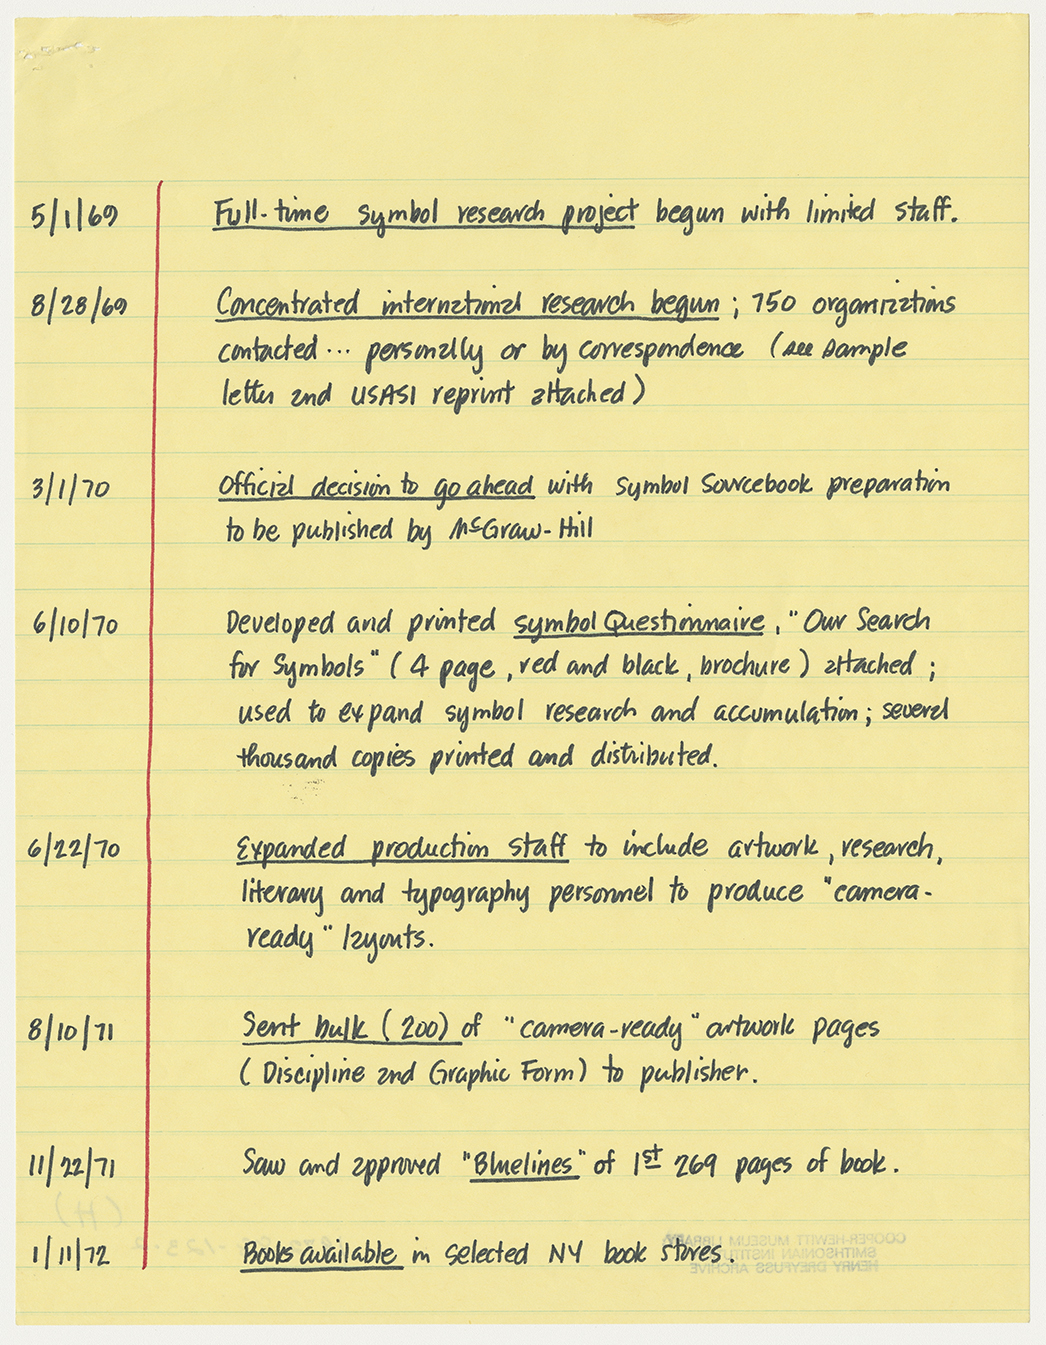 5/1/69 Full-time symbol research project begun with limited staff.
8/28/69 Concentrated international research begun; 750 organizations
contacted... personally or by correspondence (see sample
letter and USASI reprint attached)
3/1/70 Official decision to go ahead with Symbol Sourcebook preparation
to be published by McGraw-Hill
6/10/70 Developed and printed symbol Questionnaire, "Our Search
for Symbols" (4 page, red and black, brochure) attached;
used to expand symbol research and accumulation; several
thousand copies printed and distributed.
6/22/70 Expanded production staff to include artwork, research,
literary and typography personnel to produce "camera-
ready" layouts.
8/10/71 Sent bulk (200) of "camera-ready" artwork pages
(Discipline and Graphic Form) to publisher.
11/22/71 Saw and approved "Bluelines" of 1st 269 pages of book.
(H)
1/11/72 Books available in selected NY book stores.
COOPER-HEWITT MUSEUM LIBRARY
SMITHSONIAN INSTITUTION
HENRY DREYFUSS ARCHIVE